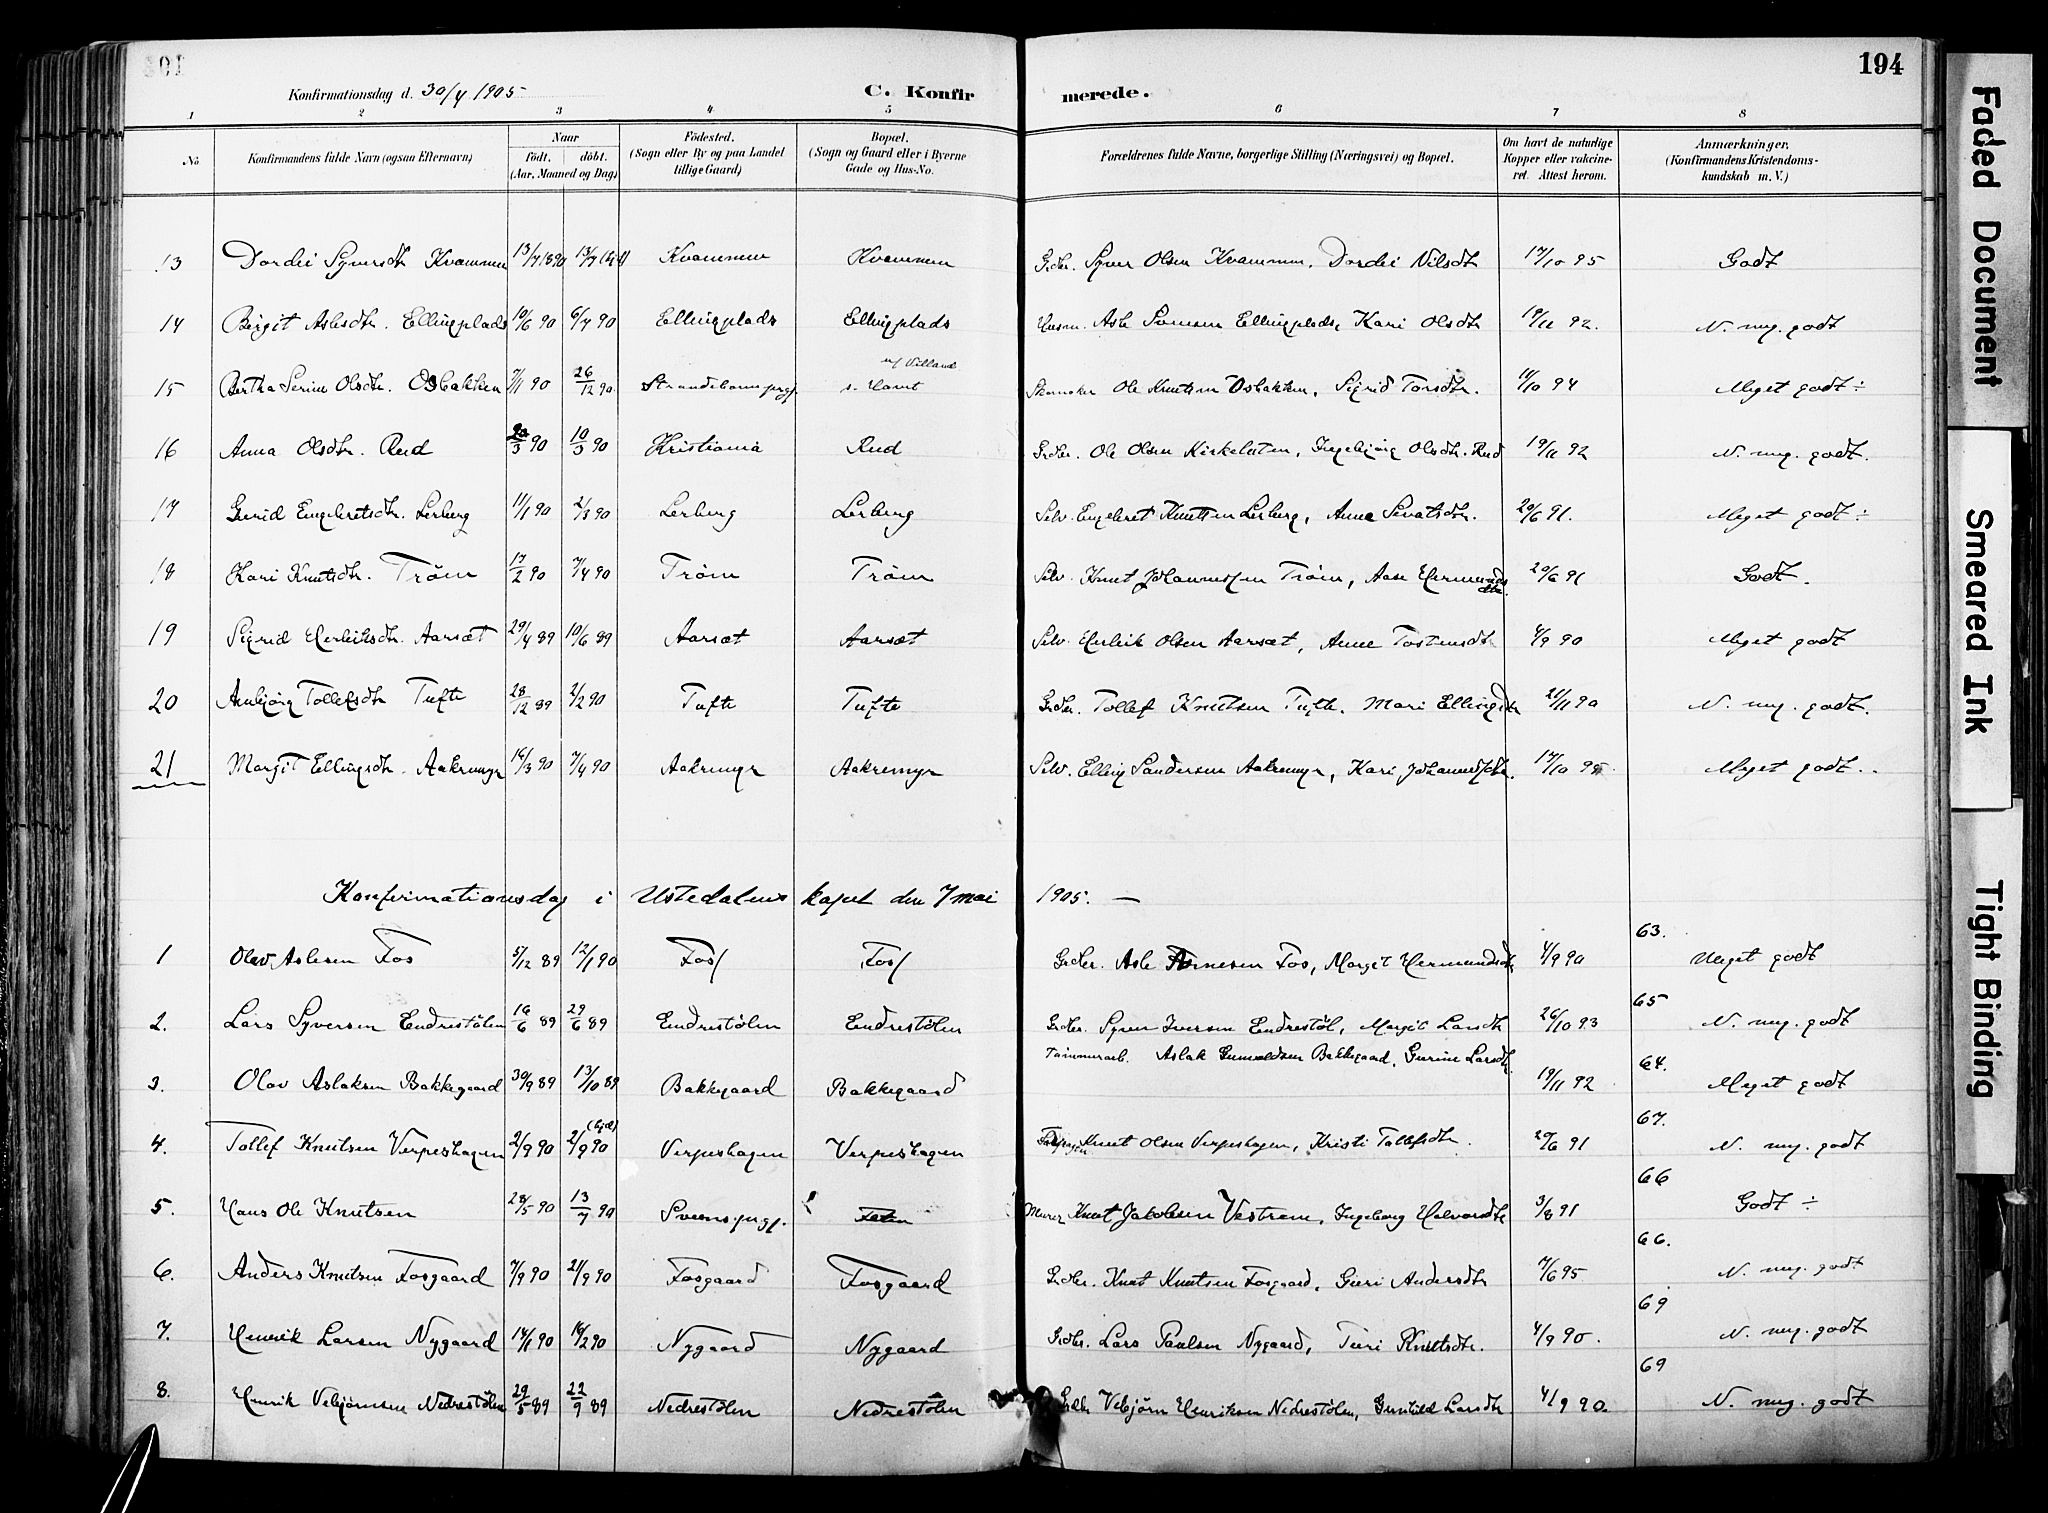 194
Konfirmationsdag d. 30/4 1905
C. Konfirmerede.
1 2 3 4 5 6 7 8
No
Konfirmandens fulde Navn (ogsaa Efternavn)
Naar
födt. döbt.
(Aar, Maaned og Dag)
Födested.
(Sogn eller By og paa Landet
tillige Gaard)
Bopæl.
(Sogn og Gaard eller i Byerne
Gade og Hus-No.
Forældrenes fulde Navne, borgerlige Stilling (Næringsvei) og Bopæl.
Om havt de naturlige
Kopper eller vakcine-
ret. Attest herom.
Anmærkninger,
(Konfirmandens Kristendoms-
kundskab m. V.)
13 Dordei Syversdtr Kvammen 13/7 1890 Kvammen Kvammen Grdbr. Syver Olsen Kvammen, Dordei Nilsdtr 17/10 95 Godt
14 Birgit Aslesdtr. Ellingplads 10/6 90 6/7 90 Ellingplads Ellingplads Husm. Asle Ellingplads, Kari Olsdtr 19/11 92. N. meg. godt
15 Bertha Serine Olsdtr. Osbakken 7/11 90 26/12 90 Strandebarm prgj. Ole Knutsen Osbakken, Sigrid Torsdtr. 11/10 94 Meget godt ÷
16 Anna Olsdtr. Rud 20/3 90 10/3 90 Kristiania Rud Grdbr. Ole Olsen Kirkeluten, Ingebjörg Olsdtr. Rud 19/11 92 N. meg. godt.
17 Gunid Engebretsdtr. Lerberg 11/1 90 2/3 90 Lerberg Lerberg Selv. Engebret Knutsen Lerberg, Anne Sevatsdtr. 20/6 91. Meget godt ÷
18 Kari Knutsdtr. Tröim 17/2 90 7/4 90 Tröim Tröim Selv. Knut Johannessen Tröim, Aase Hermundsdtr. 20/6 91 Godt.
19 Sigrid Herleiksdtr. Aarset 29/4 89 10/6 89 Aarsæt Aarsæt Selv. Herleik Olsen Aarsæt, Anne Tostensdtr 4/9 90 Meget godt
20 Anbjörg Tollefsdtr Tufte 28/12 89 2/2 90 Tufte Tufte Grdbr. Tollef Knutsen Tufte. Mari Ellingsdtr 21/11 90 N. meg. godt.
21 Margit Ellingsdtr. Aakremyr 16/3 90 7/4 90 Aakremyr Aakremyr Selv. Elling Sandersen Aakremyr, Kari Johannesdtr. 17/10 95 Meget godt.
Konfirmationsdag i Ustedalens kapel den 7 mai 1905. —
1 Olav Aslesen Fos 5/12 89 12/1 90 Foss Foss Grdbr. Asle Arnesen Fos, Margit Hermundsdtr 4/9 90 63. Meget godt
2. Lars Syversen Endrestölen 16/6 89 29/6 89 Endrestölen Endrestölen Grdbr. Syver Iversen Endrestöl, Margit Larsdtr 26/10 93 65 N. meg. godt
3. Olav Aslaksen Bakkegaard 30/9 89 13/10 89 Bakkegaard Bakkegaard Tömmerarb. Aslak Gunvaldsen Bakkegaard, Gurine Larsdtr 19/11 92 64. Meget godt
4. Tollef Knutsen Verpeshagen 2/9 90 2/9 90 Verpeshagen Verpeshagen Knut Olsen Verpeshagen, Kristi Tollefsdtr. 20/6 91 67. N. meg. godt
5. Hans Ole Knutsen 28/5 90 13/7 90 Murer Knut Jakobsen Vestrene, Ingeborg Halvorsdtr 3/8 91 66 Godt ÷
6. Anders Knutsen Fosgaard 7/9 90 21/9 90 Fosgaard Fosgaard Grdbr. Knut Knutsen Fosgaard, Guri Andersdtr 7/6 95 66. N. meg. godt
7. Henrik Larsen Nygaard 14/1 90 16/2 90 Nygaard Nygaard Grdbr. Lars Paulsen Nygaard, Turi Knutsdtr. 4/9 90. 69 N. meg. godt
8. Henrik Vebjörnsen Nedrestölen 29/5 89 22/9 89 Nedrestölen Nedrestölen Grdbr Vebjörn Henriksen Nedrestölen, Gunhild Larsdtr 4/9 90. 69 N. meg. godt
Faded Document
Smeared Ink
Tight Binding